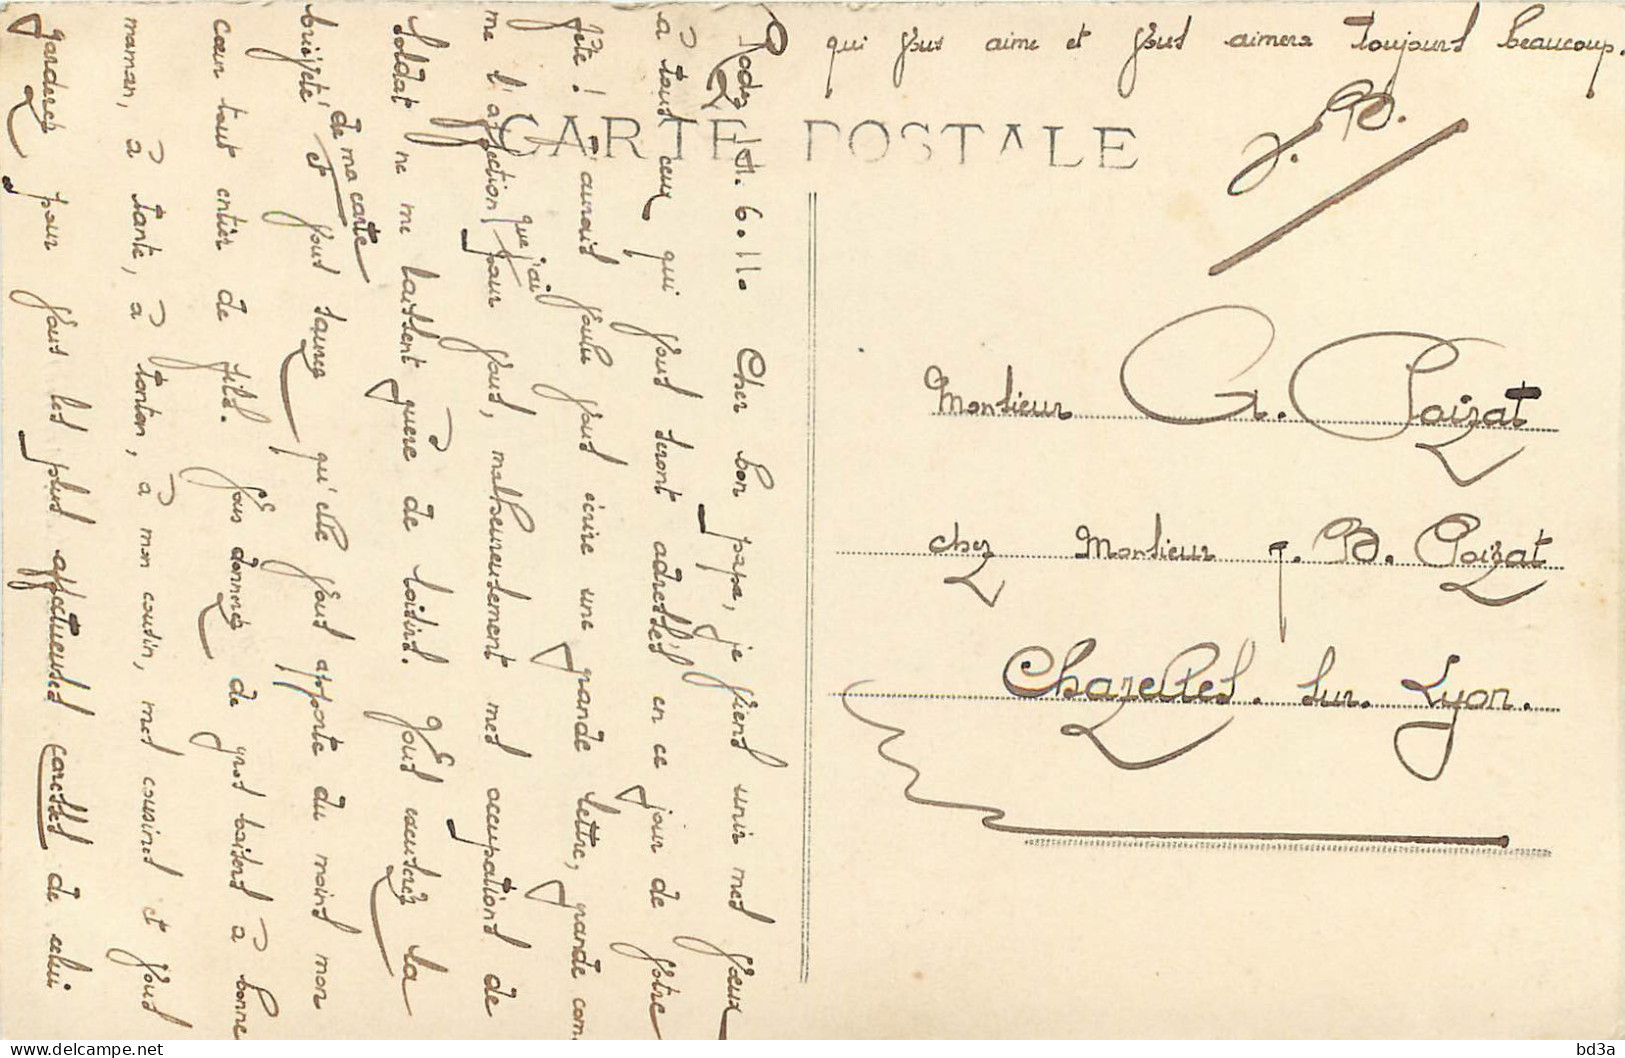 Rodez le 21.6.11. Cher bon papa, je viens unir mes vœux
à tous ceux qui vous seront adressés en ce jour de votre
fête ! J'aurais voulu vous écrire une grande lettre, grande com
me l'affection que j'ai pour vous, malheureusement mes occupations de
soldat ne me laissent guère de loisirs. Vous excuserez la
brièveté de ma carte et vous saurez qu'elle vous apporte du moins mon
cœur tout entier de fils. Vous donnerez de gros baisers à bonne
maman, à tante, à tonton, à mon cousin, mes cousines et vous
garderez pour vous les plus affectueuses caresses de celui
qui vous aime et vous aimera toujours beaucoup.
J. B.
CARTE POSTALE
Monsieur G. Poizat
chez Monsieur J. B. Poizat
Chazelles. sur. Lyon.
bd3a